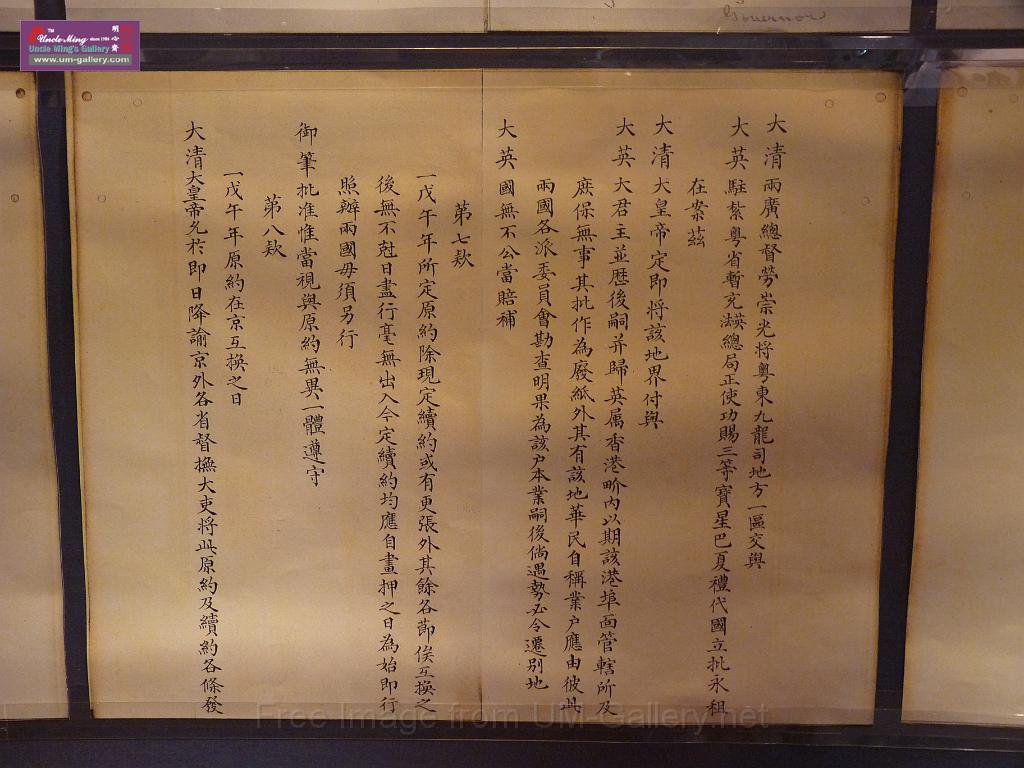 Governor
TM
Uncle Ming since 1986
明心齋
Uncle Ming's Gallery
www.um-gallery.com
大清兩廣總督勞崇光将粵東九龍司地方一區交與
大英駐紮粵省暫充英總局正使功賜三等寶星巴夏禮代國立批永租
在案茲
大清大皇帝定即将該地界付與
大英大君主並歷後嗣并歸英属香港界内以期該港埠面管轄所及
庶保無事其批作為廢紙外其有該地華民自稱業户應由彼此
兩國各派委員會勘查明果為該户本業嗣後倘遇勢必令遷别地
大英國無不公當賠補
第七款
一戊午年所定原約除現定續約或有更張外其餘各節俟互換之
後無不尅日盡行毫無出入今定續約均應自畫押之日為始即行
照辦兩國毋須另行
御筆批准惟當視與原約無異一體遵守
第八款
一戊午年原約在京互換之日
大清大皇帝允於即日降諭京外各省督撫大吏将此原約及續約各條發
Free Image from UM-Gallery.net